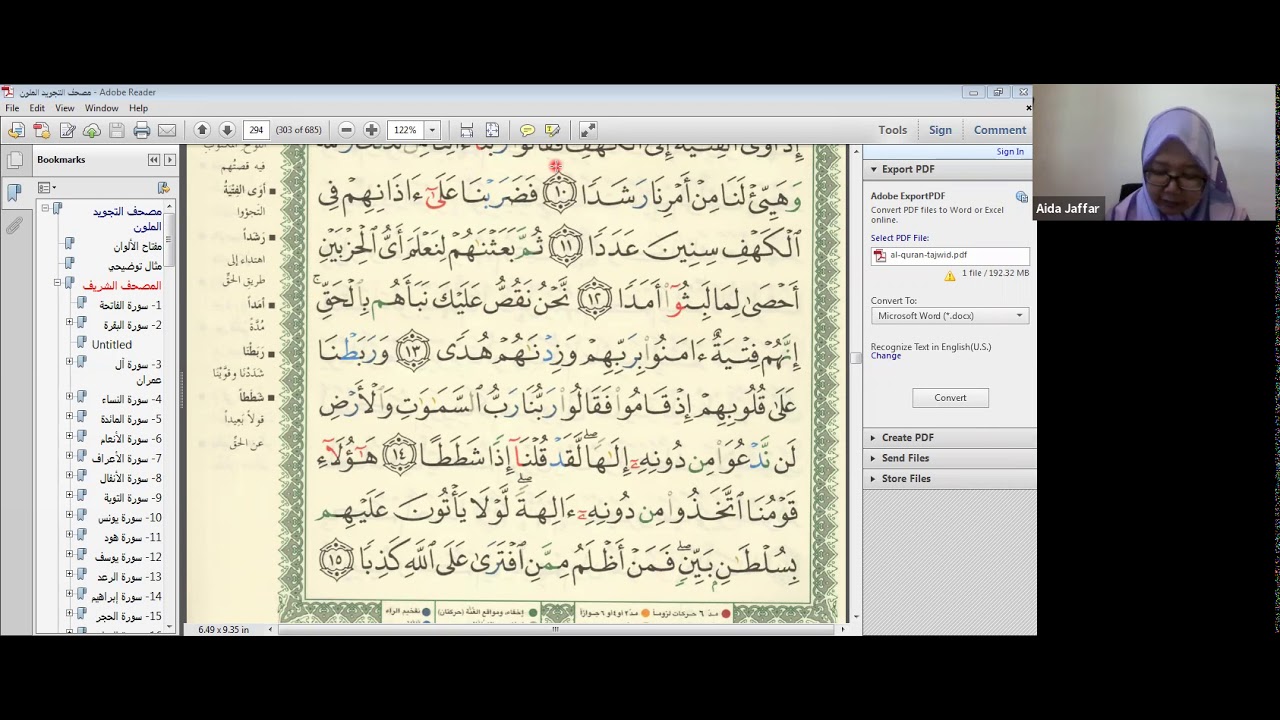 مصحف التجويد الملون - Adobe Reader
File Edit View Window Help
294 (303 of 685) 122% Tools Sign Comment
Bookmarks
مصحف التجويد الملون
مفتاح الألوان
مثال توضيحي
المصحف الشريف
1- سورة الفاتحة
2- سورة البقرة
Untitled
3- سورة آل عمران
4- سورة النساء
5- سورة المائدة
6- سورة الأنعام
7- سورة الأعراف
8- سورة الأنفال
9- سورة التوبة
10- سورة يونس
11- سورة هود
12- سورة يوسف
13- سورة الرعد
14- سورة إبراهيم
15- سورة الحجر
فيه قصتُهم
أَوَى الفِتْيَةُ
التجؤوا
رَشَداً
اهتداء إلى
طريق الحقّ
أمَداً
مُدَّةً
رَبَطْنَا
شددْنا وقوَّيْنا
شَطَطاً
قولاً بعيداً
عن الحقّ
وَهَيِّئْ لَنَا مِنْ أَمْرِنَا رَشَدًا ١٠ فَضَرَبْنَا عَلَىٰٓ ءَاذَانِهِمْ فِى
ٱلْكَهْفِ سِنِينَ عَدَدًا ١١ ثُمَّ بَعَثْنَٰهُمْ لِنَعْلَمَ أَىُّ ٱلْحِزْبَيْنِ
أَحْصَىٰ لِمَا لَبِثُوٓا۟ أَمَدًا ١٢ نَّحْنُ نَقُصُّ عَلَيْكَ نَبَأَهُم بِٱلْحَقِّ ۚ
إِنَّهُمْ فِتْيَةٌ ءَامَنُوا۟ بِرَبِّهِمْ وَزِدْنَٰهُمْ هُدًى ١٣ وَرَبَطْنَا
عَلَىٰ قُلُوبِهِمْ إِذْ قَامُوا۟ فَقَالُوا۟ رَبُّنَا رَبُّ ٱلسَّمَٰوَٰتِ وَٱلْأَرْضِ
لَن نَّدْعُوَا۟ مِن دُونِهِۦٓ إِلَٰهًا ۖ لَّقَدْ قُلْنَآ إِذًا شَطَطًا ١٤ هَٰٓؤُلَآءِ
قَوْمُنَا ٱتَّخَذُوا۟ مِن دُونِهِۦٓ ءَالِهَةً ۖ لَّوْلَا يَأْتُونَ عَلَيْهِم
بِسُلْطَٰنٍۭ بَيِّنٍ ۖ فَمَنْ أَظْلَمُ مِمَّنِ ٱفْتَرَىٰ عَلَى ٱللَّهِ كَذِبًا ١٥
مدّ ٦ حركات لزوماً مدّ ٢ أو ٤ أو ٦ جوازاً إخفاء، ومواقع الغُنَّة (حركتان) تفخيم الراء
6.49 x 9.35 in
Sign In
Export PDF
Adobe ExportPDF
Convert PDF files to Word or Excel online.
Select PDF File:
al-quran-tajwid.pdf
1 file / 192.32 MB
Convert To:
Microsoft Word (*.docx)
Recognize Text in English(U.S.)
Change
Convert
Create PDF
Send Files
Store Files
Aida Jaffar